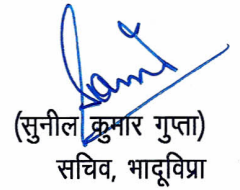 (सुनील कुमार गुप्ता)
सचिव, भादूविप्रा